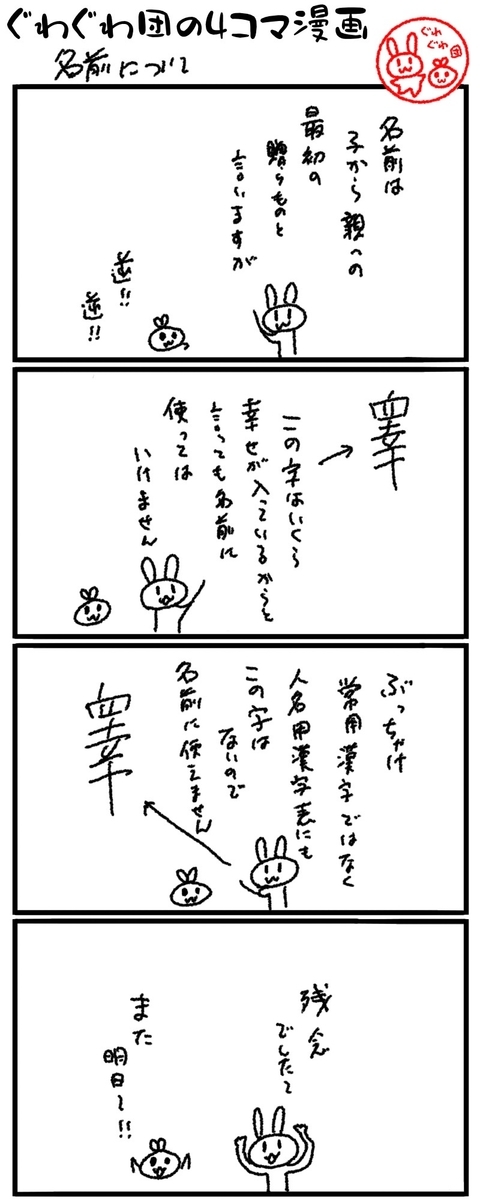 ぐわぐわ団の4コマ漫画
ぐわ
ぐわ
団
名前について
名前は
子から親への
最初の
贈りものと
言いますが
逆!!
逆!!
睾
この字はいくら
幸せが入っているからと
言っても名前に
使っては
いけません
ぶっちゃけ
常用漢字ではなく
人名用漢字表にも
ないので
この字は
名前に使えません
睾
残念
でした〜
また
明日〜!!